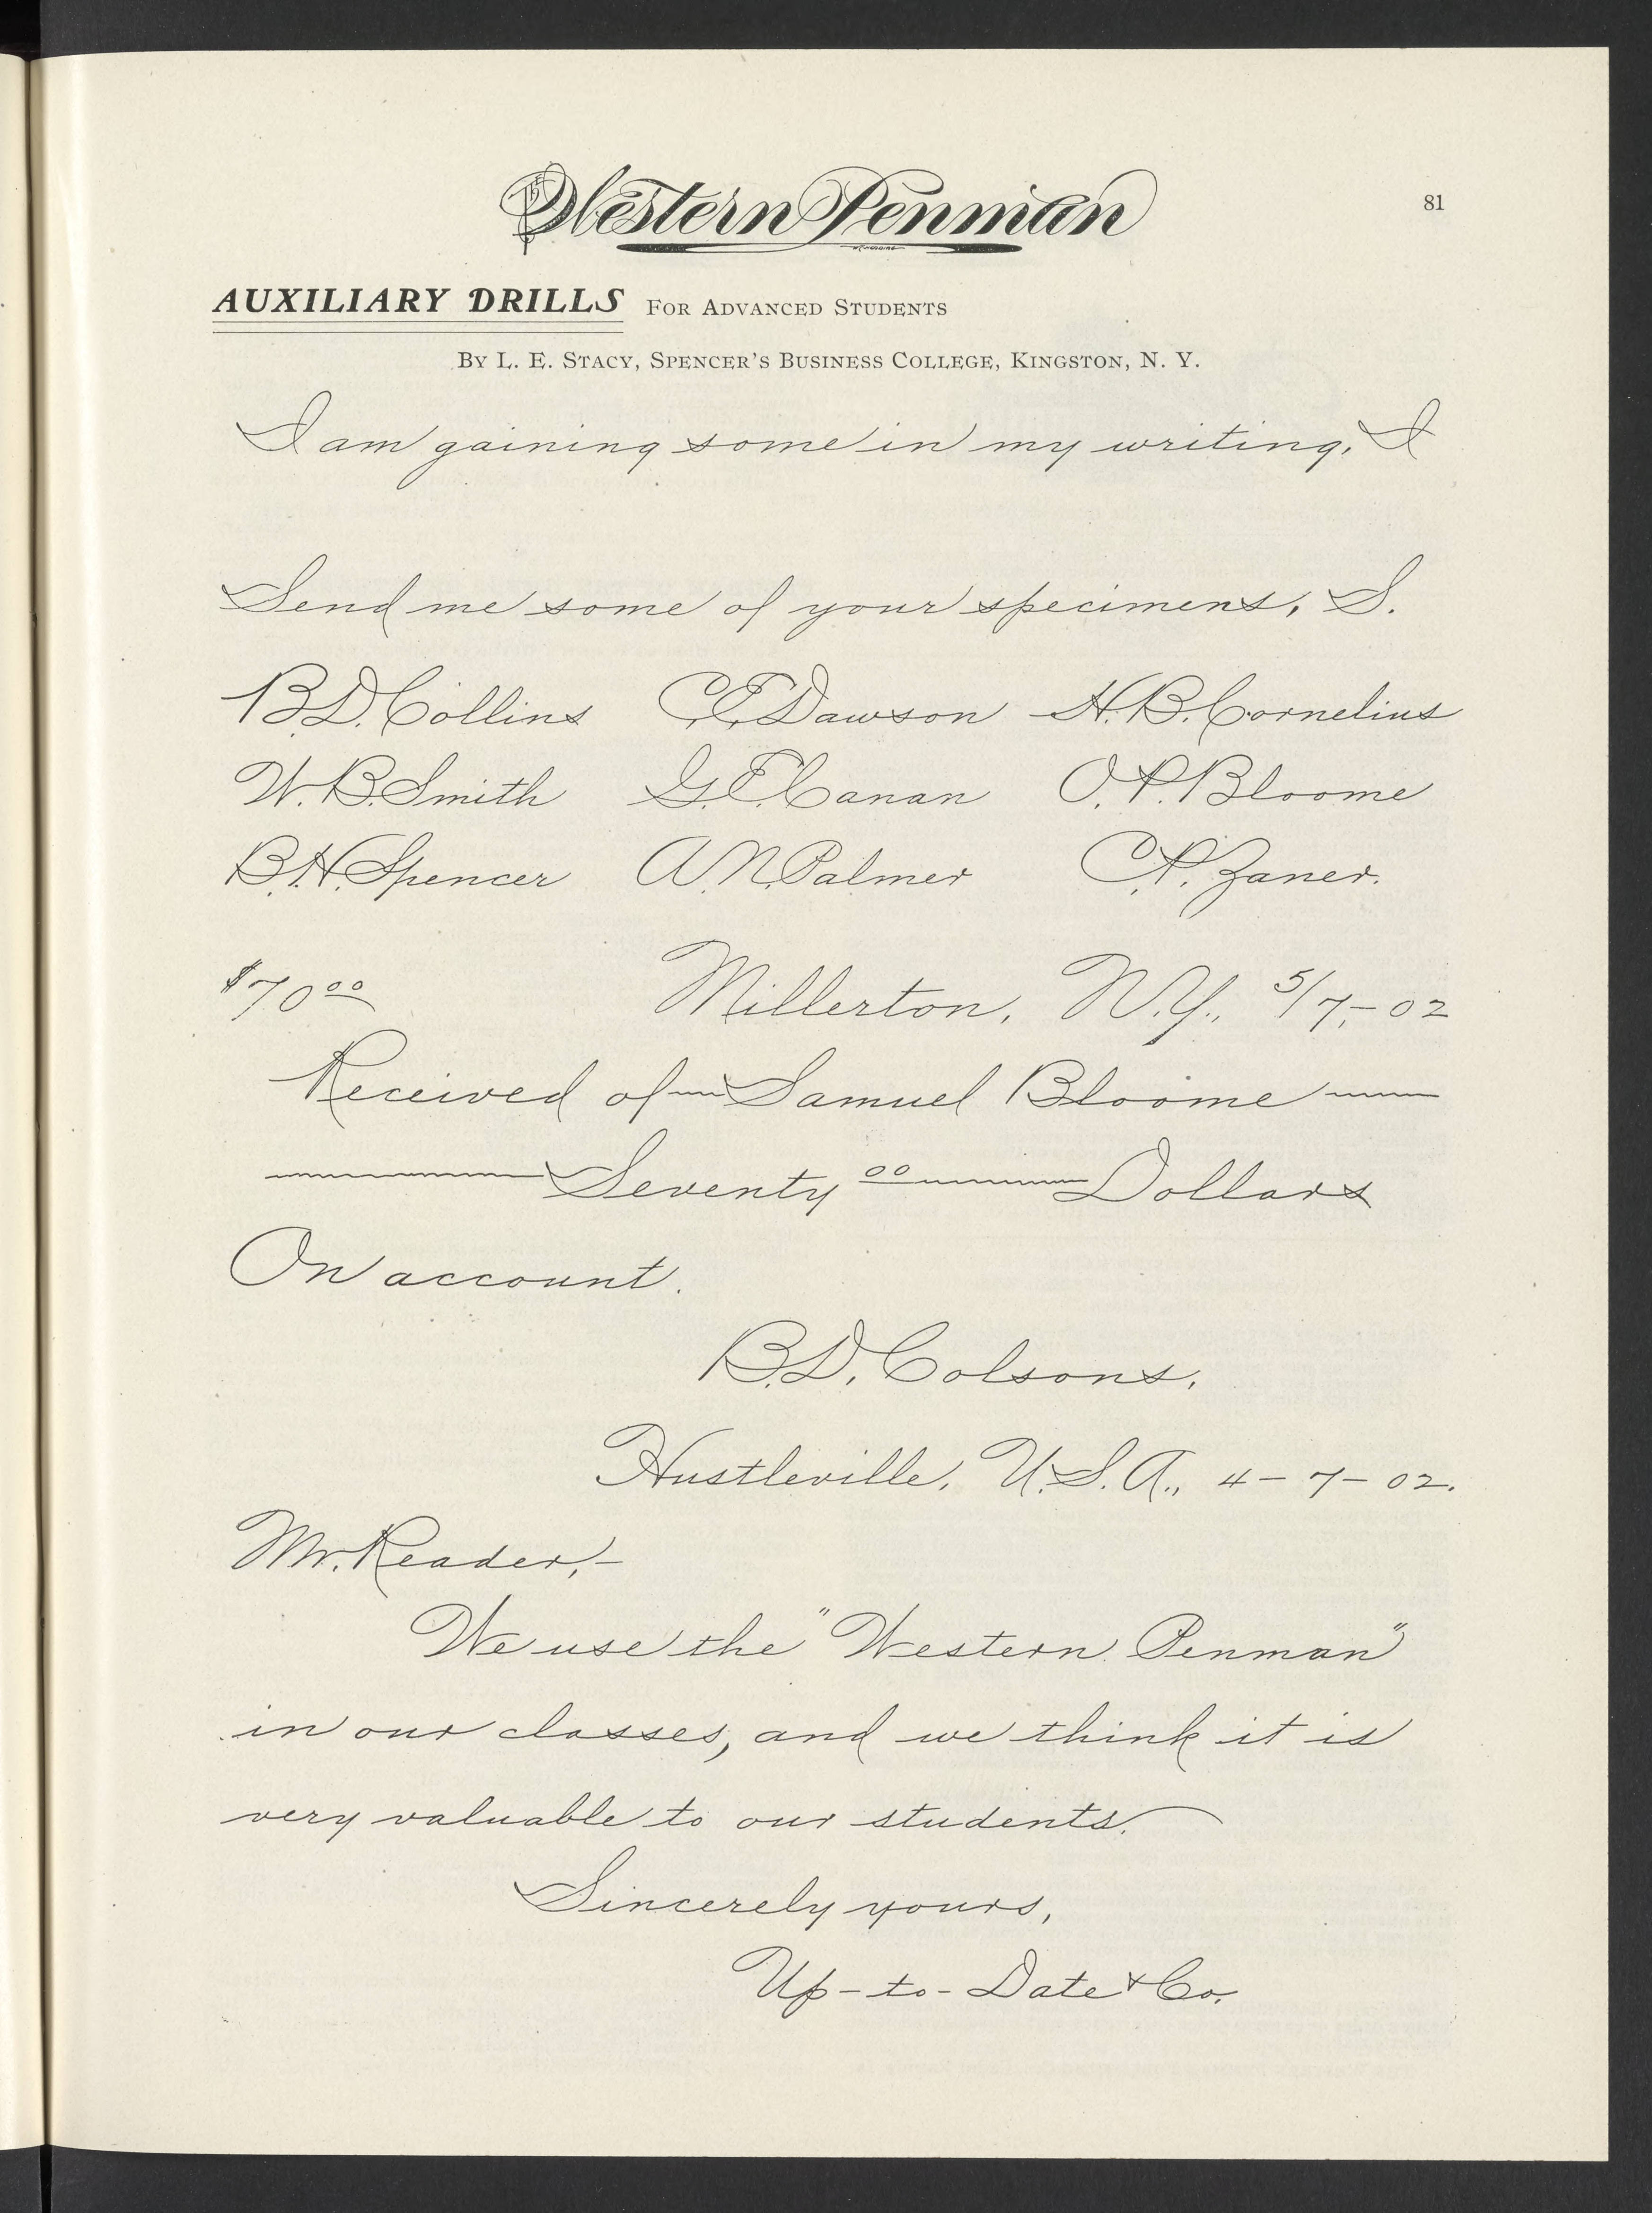 Western Penman
81
AUXILIARY DRILLS FOR ADVANCED STUDENTS
BY L. E. STACY, SPENCER'S BUSINESS COLLEGE, KINGSTON, N. Y.
I am gaining some in my writing, I
Send me some of your specimens, S.
B.D. Collins C.E. Dawson H.B. Cornelius
W.B. Smith G.E. Canan O.P. Bloome
B.H. Spencer A.N. Palmer C.P. Zaner.
$70 00 Millerton, N.Y., 5/7,-02
Received of Samuel Bloome
Seventy 00 Dollars
On account.
B.D. Colsons.
Hustleville, U.S.A., 4-7-02.
Mr. Reader,-
We use the "Western Penman"
in our classes, and we think it is
very valuable to our students.
Sincerely yours,
Up-to-Date & Co.